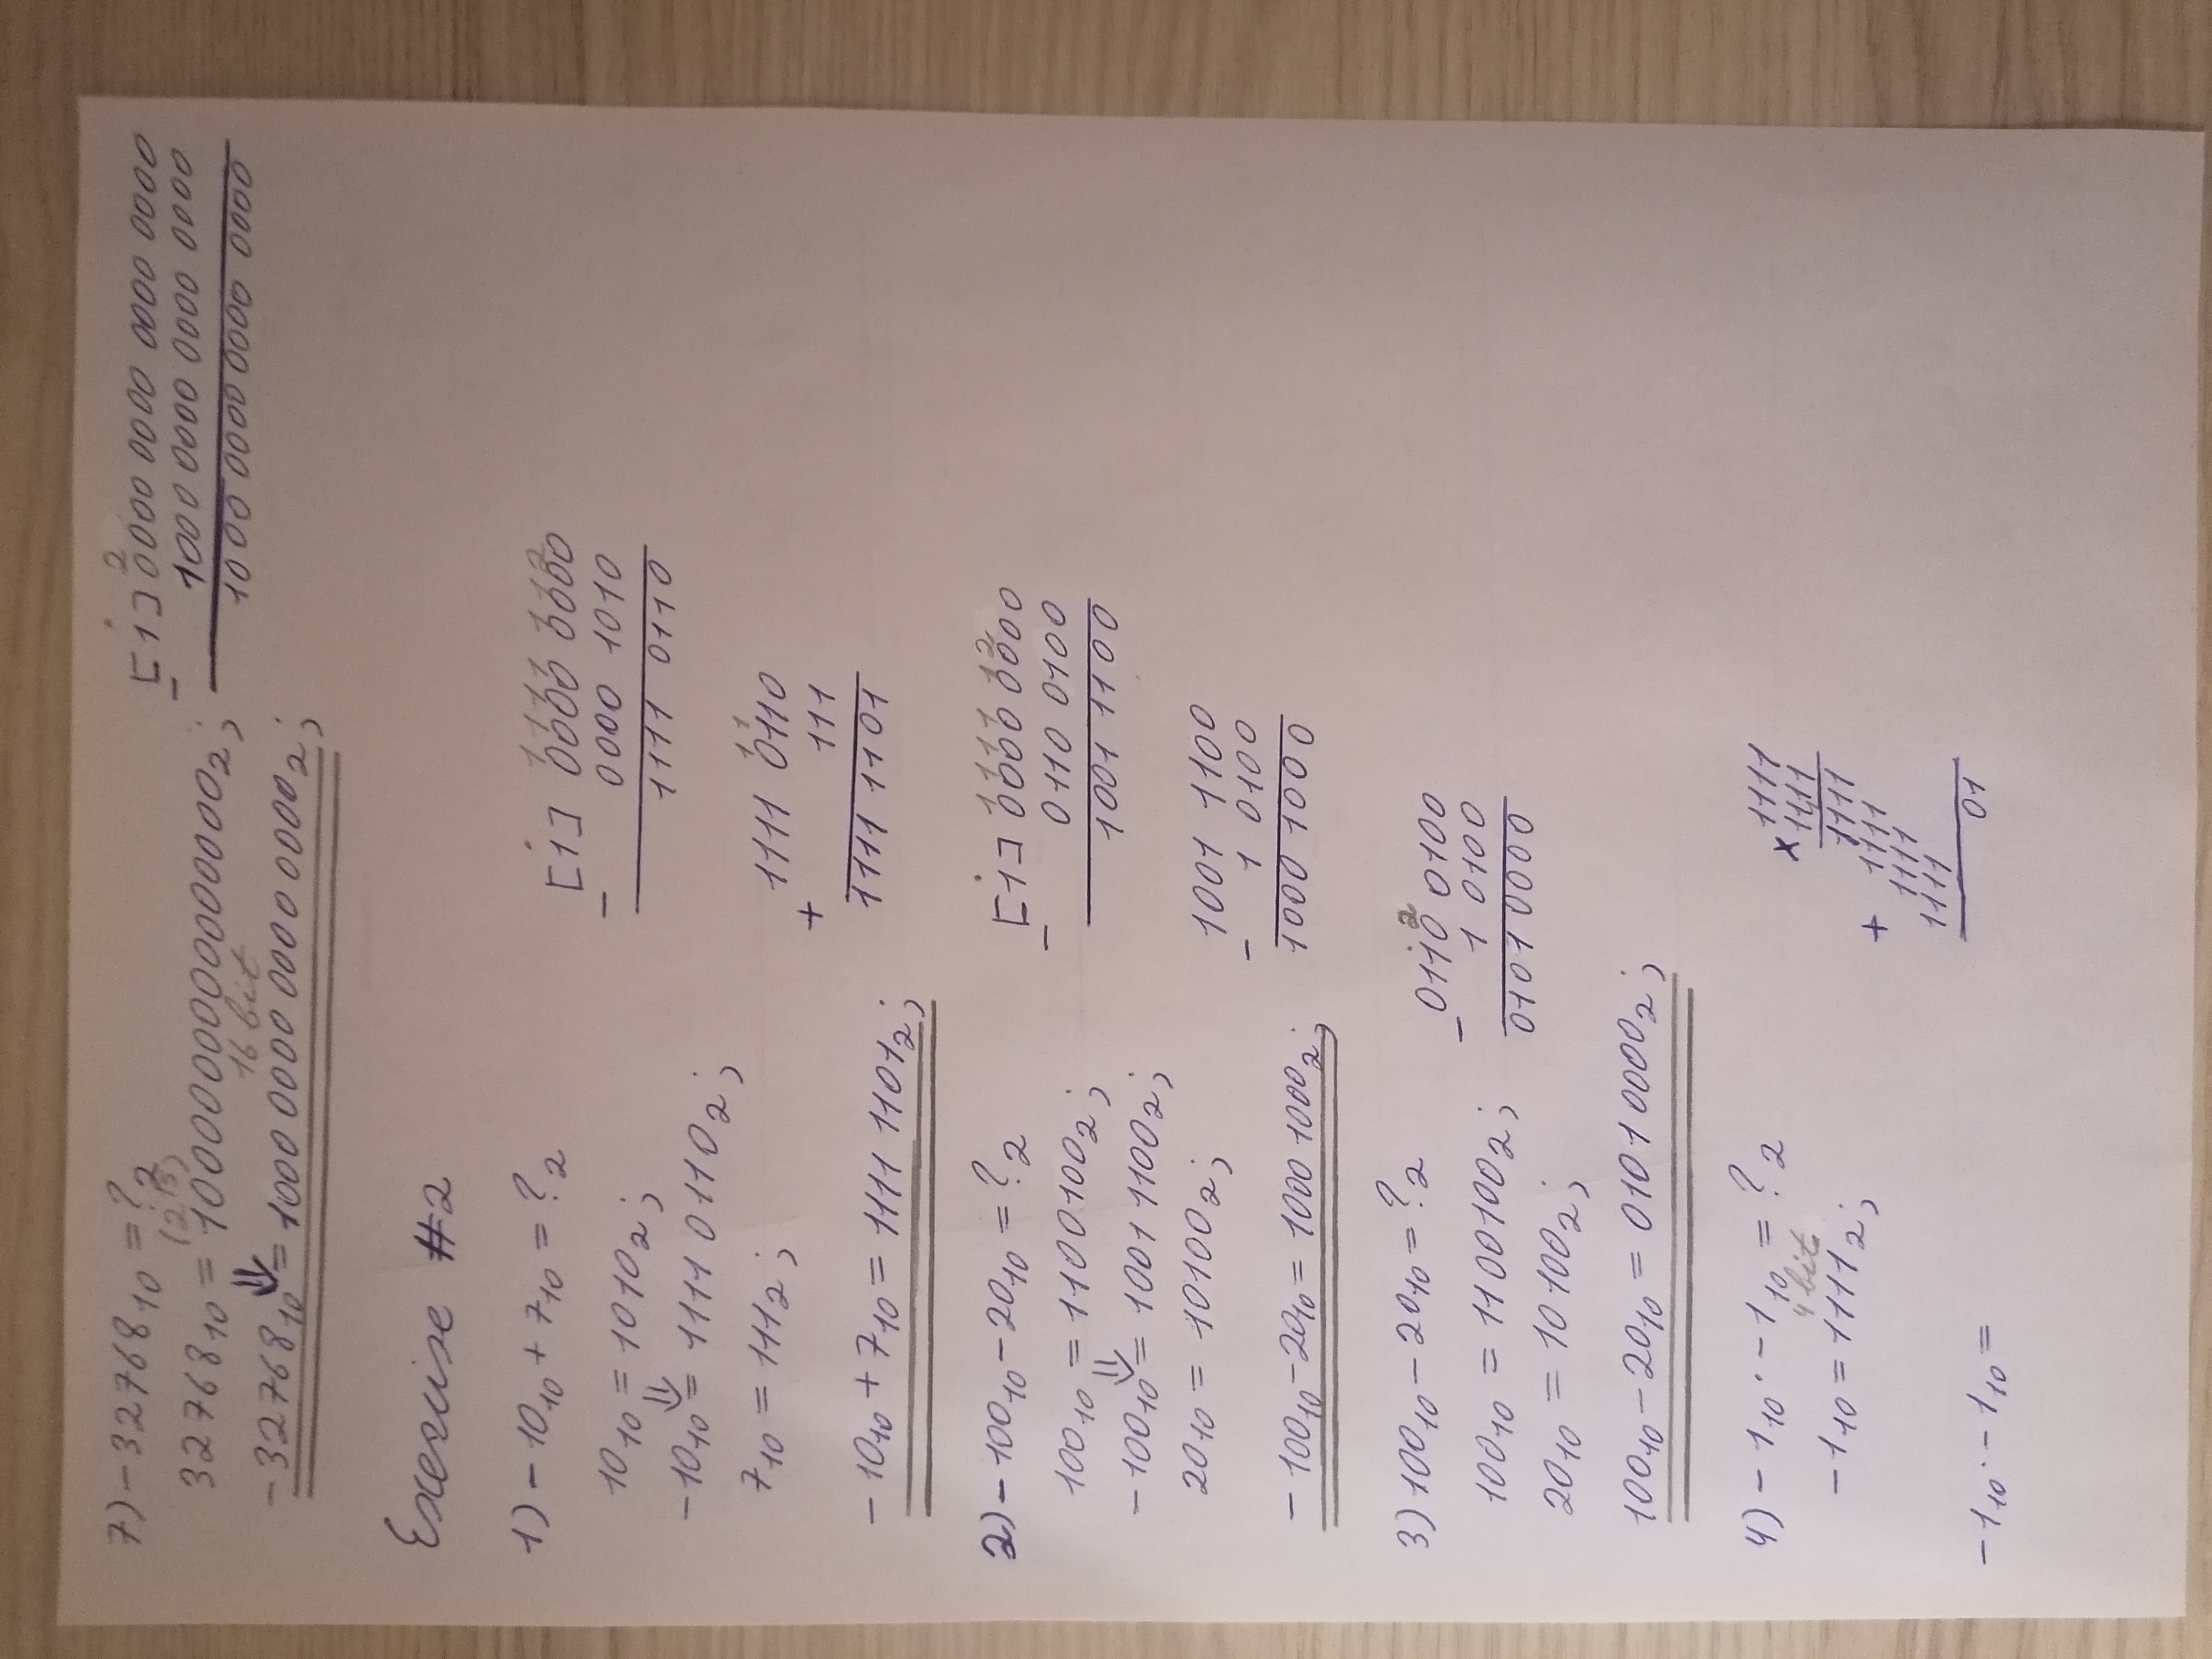 7) -32768₁₀ = ?₂
(2¹⁵)
32768₁₀ = 1000000000000000₂;
16 bit
⇓
-32768₁₀ = 1000 0000 0000 0000₂;
2
[1] 0000 0000 0000 0000
- 1000 0000 0000 0000
1000 0000 0000 0000
Exercise #2
1) -10₁₀ + 7₁₀ = ?₂
10₁₀ = 1010₂;
⇓
-10₁₀ = 1111 0110₂;
7₁₀ = 111₂;
-10₁₀ + 7₁₀ = 1111 1101₂;
1111 112
[1] 0000 0000
- 0000 1010
1111 0110
11
1111 0110
+ 111
1111 1101
2) -100₁₀ - 20₁₀ = ?₂
100₁₀ = 1100100₂;
⇓
-100₁₀ = 1001 1100₂;
20₁₀ = 10100₂;
-100₁₀ - 20₁₀ = 1000 1000₂;
1111 12
[1] 0000 0000
- 0110 0100
1001 1100
1001 1100
- 1 0100
1000 1000
3) 100₁₀ - 20₁₀ = ?₂
100₁₀ = 1100100₂;
20₁₀ = 10100₂;
100₁₀ - 20₁₀ = 0101 0000₂;
2
0110 0100
- 1 0100
0101 0000
4) -1₁₀ · -1₁₀ = ?₂
4 bit
-1₁₀ = 1111₂;
-1₁₀ · -1₁₀ =
1111
x 1111
1111
+ 1111
1111
1111
01